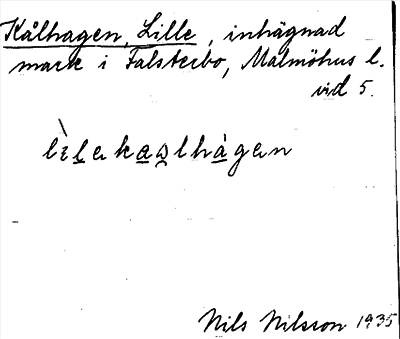 Kålhagen, Lille, inhägnad
mark i Falsterbo, Malmöhus l.
vid 5.
Nils Nilsson 1935